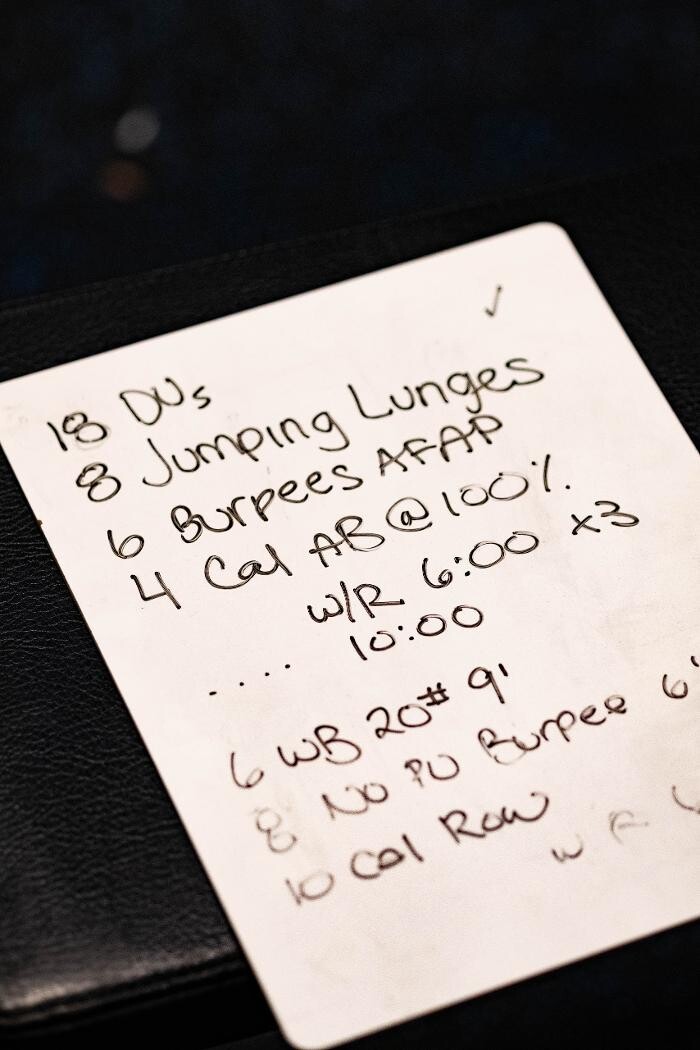 ✓
18 DUs
8 Jumping Lunges
6 Burpees AFAP
4 Cal AB @ 100%
W/R 6:00 x3
.... 10:00
6 WB 20# 9'
8 No PU Burpee 6"
10 Cal Row